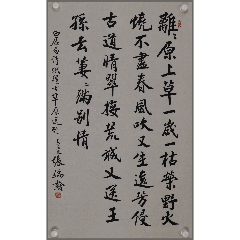 離々原上草一歲一枯榮野火
燒不盡春風吹又生遠芳侵
古道晴翠接荒城又送王
孫去萋々滿別情
白居易詩賦得古草原送別